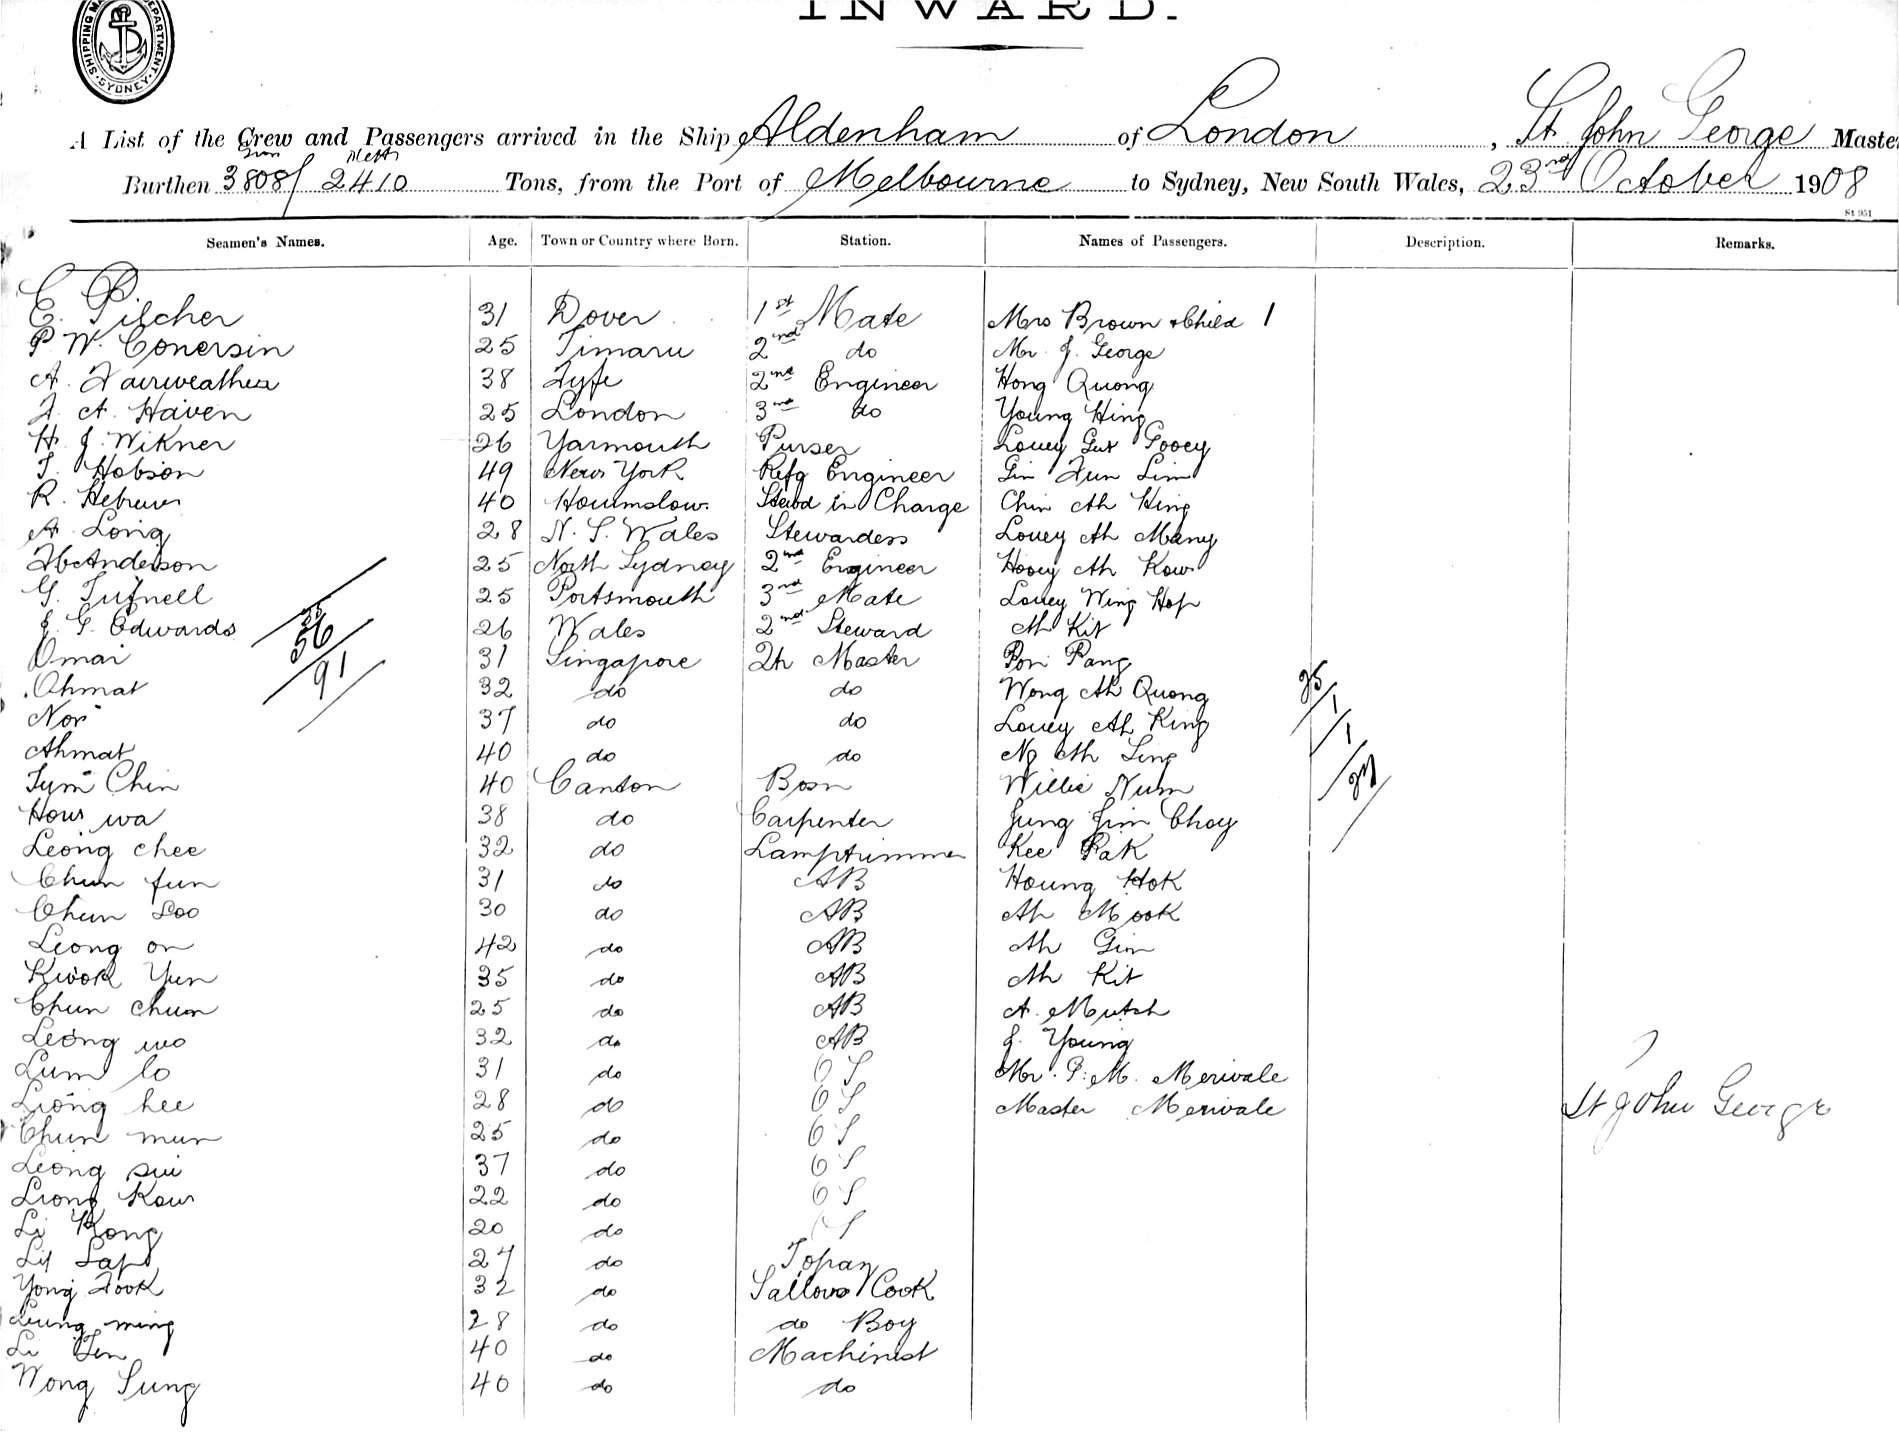 INWARD.
SHIPPING MA DEPARTMENT SYDNEY
A List of the Crew and Passengers arrived in the Ship Aldenham of London, St John George Master
Burthen 3808 / 2410 Tons, from the Port of Melbourne to Sydney, New South Wales, 23rd October 1908
St 951
Seamen's Names. Age. Town or Country where Born. Station. Names of Passengers. Description. Remarks.
E. Pilcher 31 Dover 1st Mate Mrs Brown & Child 1
P W. Conersin 25 Timaru 2nd do Mr. J. George
A. Fairweather 38 Fyfe 2nd Engineer Hong Quong
F. A. Haven 25 London 3rd do Young Hing
H. J. Wikner 26 Yarmouth Purser Louey Gut Gooey
T. Hobson 49 New York Refg Engineer Gin Fun Lim
R. Hebrew 40 Hounslow. Stewd in Charge Chin Ah Hing
A. Long 28 N. S. Wales Stewardess Louey Ah Mang
H Anderson 25 North Sydney 2nd Engineer Hooey Ah Kow
G. Tufnell 25 Portsmouth 3rd Mate Louey Wing Hop
J. G. Edwards 26 Wales 2nd Steward Ah Kit
56
Omar 31 Singapore 2r Master Pon Pang
91
Ahmat 32 do do Wong Ah Quong
25
Nor 37 do do Louey Ah King
1
1
Ahmat 40 do do Ng Ah Ling
27
Tym Chin 40 Canton Bosn Willie Num
How wa 38 do Carpenter Jung Jim Choy
Leong chee 32 do Lamptrimmer Kee Pak
Chun fun 31 do AB Houng Hok
Chun Soo 30 do AB Ah Mook
Leong on 42 do AB Ah Gim
Kwok Yun 35 do AB Ah Kit
Chun chun 25 do AB A. Mutch
Leong wo 32 do AB J. Young
Lum lo 31 do OS Mr. P. M. Merivale
Leong hee 28 do OS Master Merivale St John George
Chun mun 25 do OS
Leong sui 37 do OS
Leong Kow 22 do OS
Li Kong 20 do OS
Lil Sap 27 do Topan
Yong Fook 32 do Sailors Cook
Leung ming 28 do do Boy
Li Yen 40 do Machinist
Wong Sung 40 do do